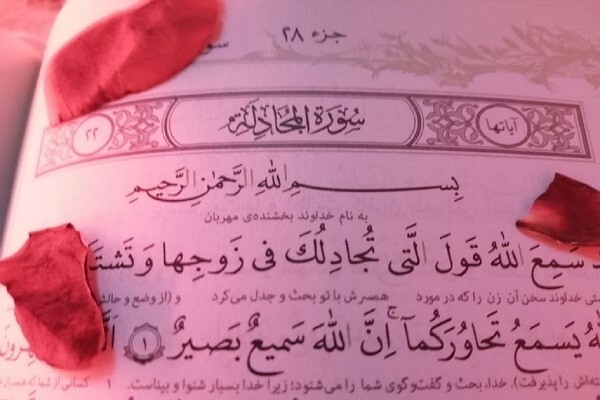 جزء ۲۸
آیاتها سُورَةُ المُجَادِلَة ۲۲
بِسْمِ اللَّهِ الرَّحْمٰنِ الرَّحِيمِ
به نام خداوند بخشنده‌ی مهربان
سَمِعَ اللَّهُ قَوْلَ الَّتي تُجادِلُكَ في زَوجِها وَ تَشتَ
خداوند سخن آن زن را که در مورد همسرش با تو بحث و جدل می‌کرد و (از وضع و حال
يَسمَعُ تَحاوُرَكُمآ ۚ اِنَّ اللَّهَ سَميعٌ بَصيرٌ ۱
را پذیرفت). خدا، بحث و گفت‌وگوی شما را می‌شنود؛ زیرا خدا بسیار شنوا و بیناست. ۱ کسانی از شما که